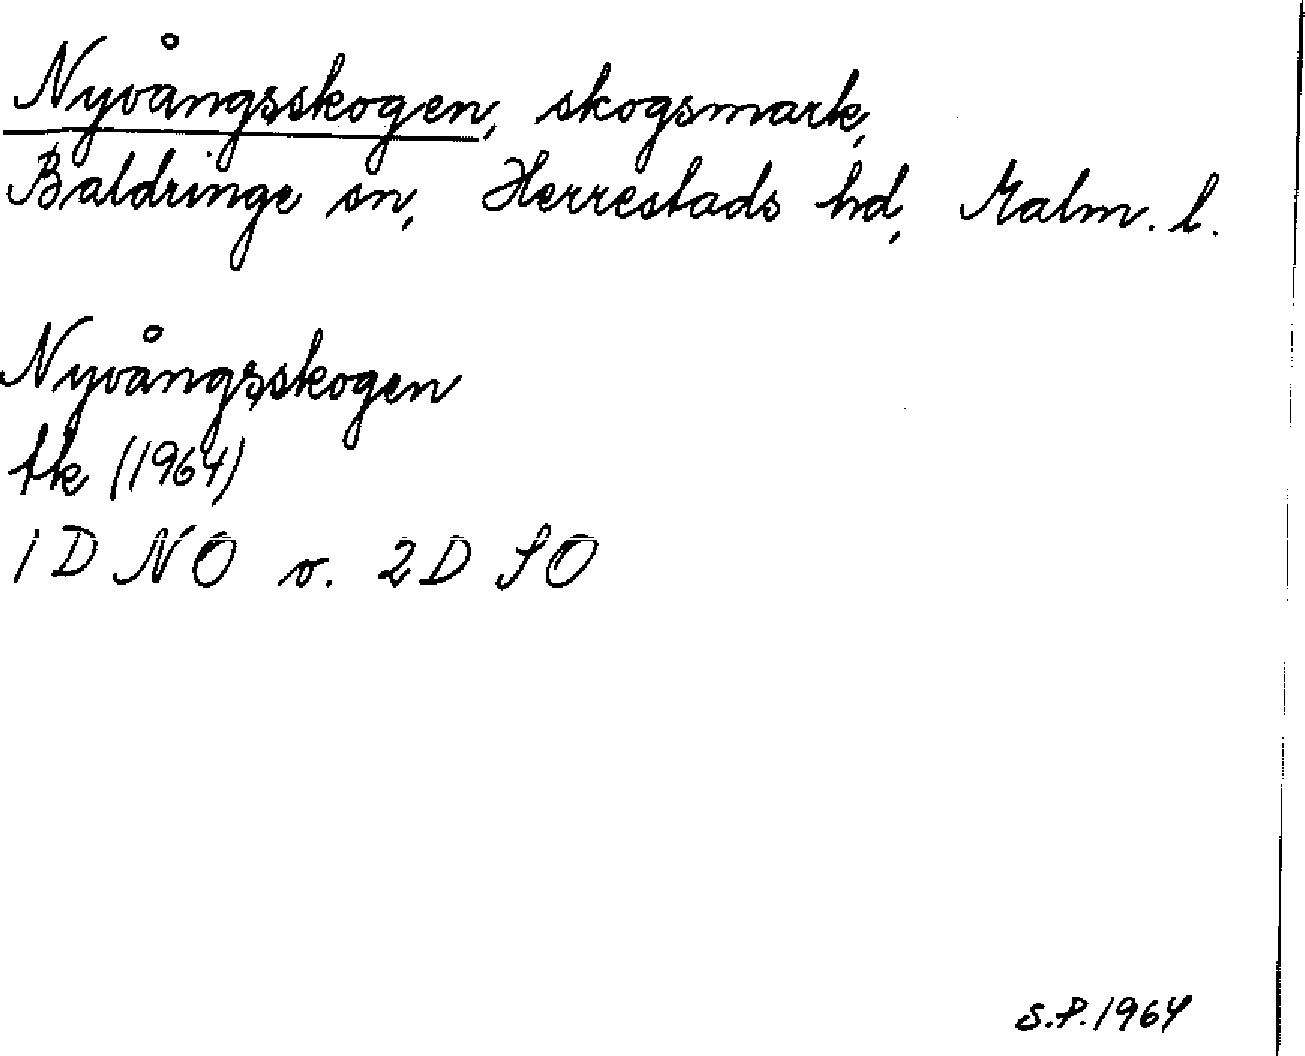 Nyvångsskogen, skogsmark,
Baldringe sn, Herrestads hd, Malm. l.
Nyvångsskogen
tk (1964)
1D NO o. 2D SO
S.P. 1964